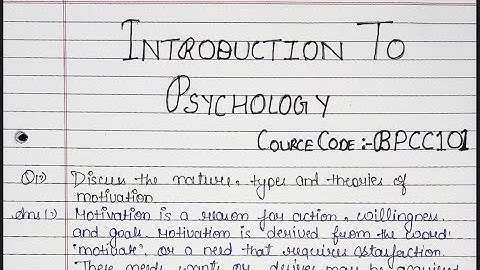 INTRODUCTION TO
PSYCHOLOGY
COURCE CODE :- BPCC101
Q1⇒) Discuss the nature, types and theories of
motivation.
Ans 1⇒) Motivation is a reason for action, willingness,
and goals. Motivation is derived from the word
"motivate" or a need that requires satisfaction.
These needs, wants or desires may be acquired